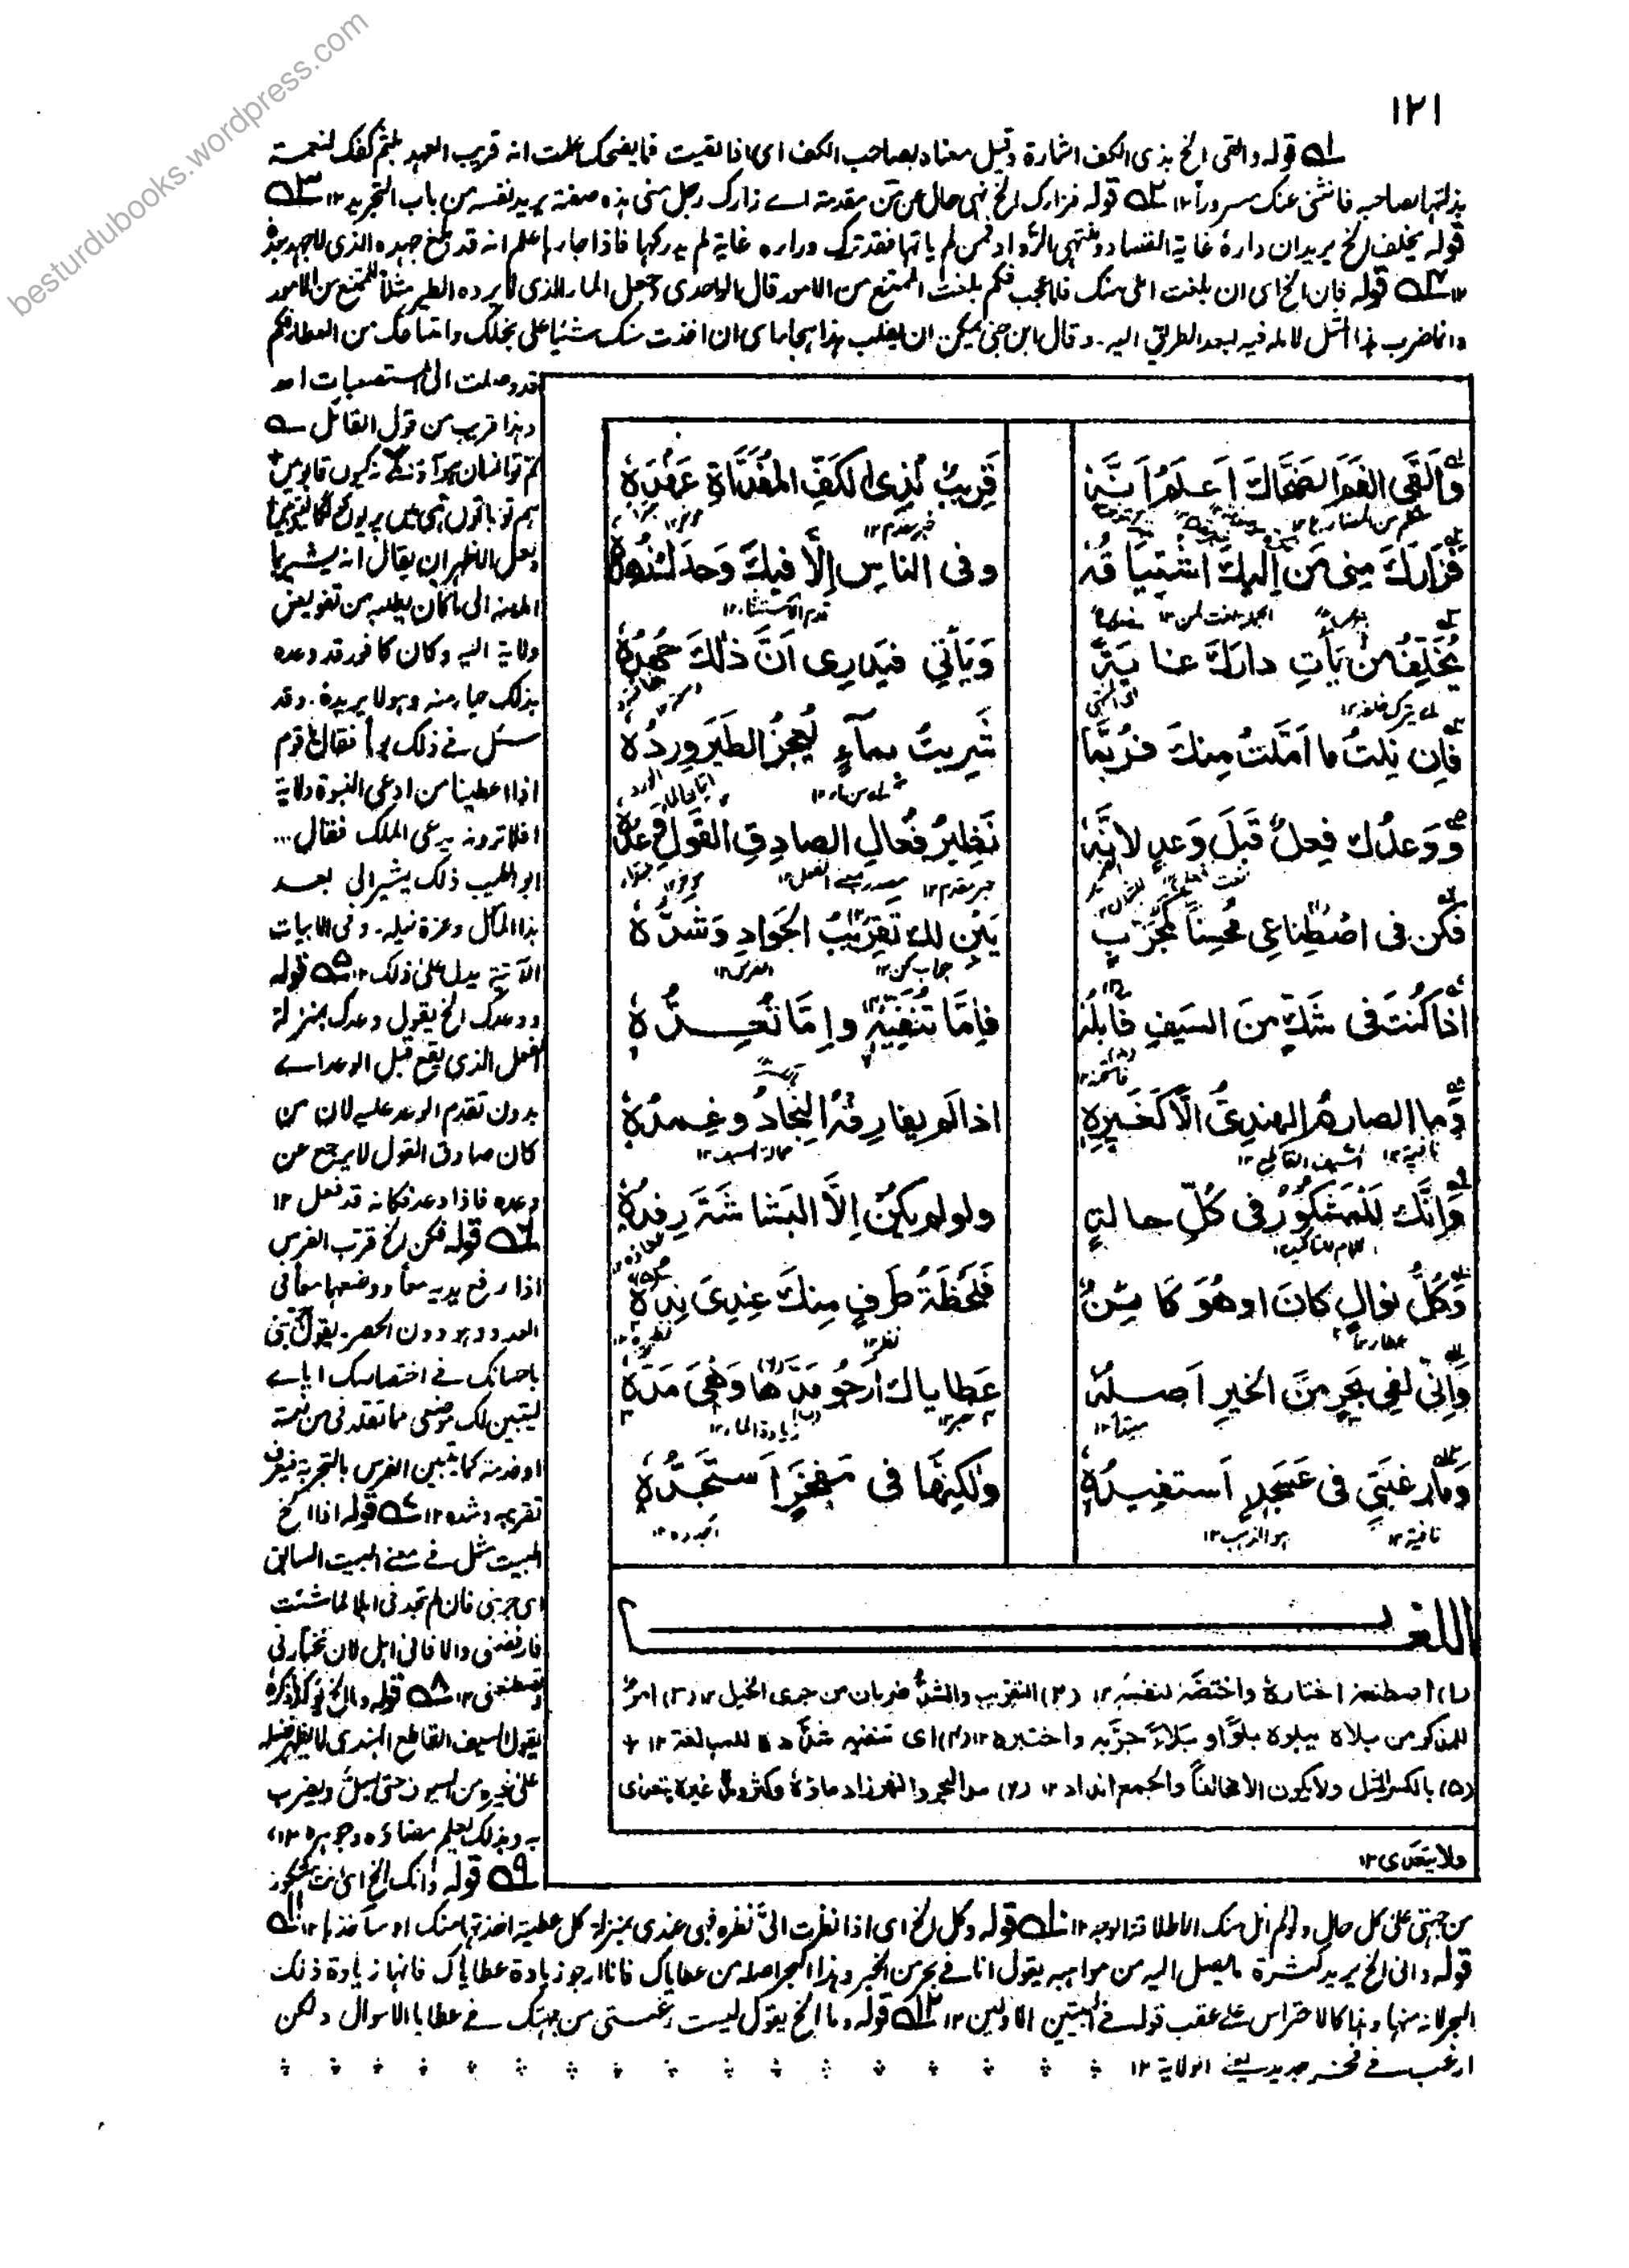 besturdubooks.wordpress.com
١٢١
قوله والقى الخ بذى الكف اشارة وقيل معناه بصاحب الكف اى اذا لقيت فما يضحك علمت انه قريب العهد بلثم كفك لنعمة
بذلتها لصاحبه فانثنى عنك مسرورا ١٢ قوله فزارك الخ
قوله يخلف الخ يريد ان داره غاية القصاد ومنتهى الرواد فمن لم ياتها فقد ترك وراءه غاية لم يدركها فاذا جاءها علم انه قد بلغ جهده الذى لا جهد بعده
١٢ قوله فان الخ اى ان بلغت املى منك فلا عجب فكم بلغت الممتنع من الامور قال الواحدى جعل الماء الذى لا يرده الطير مثلا للممتنع من الامور
وانما ضرب هذا المثل لامله فيه لبعد الطريق اليه. وقال ابن جنى يمكن ان يقلب هذا هجاء اى ان اخذت منك شيئا على بخلك وامتناعك من العطاء فكم
قد وصلت الى المستصعبات اھ
وهذا قريب من قول القائل
ولعل الاظهر ان يقال انه يشير بهذا
المعنى الى ما كان يطلبه من تفويض
ولاية اليه وكان كافور قد وعده
بذلك حياء منه وهو لا يريده. وقد
سئل فى ذلك يوما فقال يا قوم
اذا اعطينا من ادعى النبوة ولاية
افلا ترونه يدعى الملك فقال...
ابو الطيب ذلك يشير الى بعد
هذا المآل وعزة نيله. وفى الابيات
الآتية يدل على ذلك ١٢ قوله
ووعدك الخ يقول وعدك بمنزلة
الفعل الذى يقع قبل الوعد اے
بدون تقدم الوعد عليه لان من
كان صادق القول لا يرجع عن
وعده فاذا وعد فكانه قد فعل ١٢
قوله فكن الخ قرب الفرس
اذا رفع يديه معا ووضعهما معا فى
العدو وهو دون الحضر. يقول جربنى
باحسانك فى اختصاصك اياى
ليتبين لك موضعى مما تقلدنى من نعمة
او خدمة كما يتبين الفرس بالتجربة فيعرف
تقريبه وشده ١٢ قوله اذا الخ
البيت مثل فى معنى البيت السابق
اى جربنى فان لم تجدنى اهلا لما شئت
فارفضنى والا فانى اهل لان تختارنى
وتصطنعنى ١٢ قوله وما الخ
يقول السيف القاطع الهندى لا يظهر فضله
على غيره من السيوف حتى يسل ويضرب
به وبذلك يعلم مضاؤه وجوهره ١٢
قوله وانك الخ اى انت مشكور
وَاَلقَى الفَمَ الضَحّاكَ اَعلَمُ اَنَّهٗ قَرِيبٌ بِذِى الكَفِّ المُفَدّاةِ عَهدُهٗ
فَزَارَكَ مِنِّى مَن اِلَيكَ اشتِيَاقُهٗ وفى الناسِ اِلّا فيكَ وَحدَكَ زُهدُهٗ
يُخَلِّفُ مَن لَم يَأتِ دارَكَ غايَةً وَيَأتي فيَدرِى اَنَّ ذٰلِكَ جُهدُهٗ
فَاِن نِلتُ ما اَمَّلتُ مِنكَ فرُبَّما شَرِبتُ بماءٍ يُعجِزُ الطَيرَ وِردُهٗ
وَوَعدُكَ فِعلٌ قَبلَ وَعدٍ لِانَّهٗ نَظِيرُ فَعالِ الصادِقِ القَولِ وَعدُهٗ
فَكُن فى اصْطِناعِى مُحسِناً كَمُجَرِّبٍ يَبِن لكَ تَقرِيبُ الجَوادِ وَشَدُّهٗ
اِذا كُنتَ فى شَكٍّ مِنَ السَيفِ فَابلُهٗ فَاِمّا تُنَفِّيهِ وَاِمّا تُعِدُّهٗ
وَما الصارِمُ الهِندِىُّ اِلّا كَغَيرِهٖ اذا لم يفارِقهُ النِجادُ وغِمدُهٗ
وَاِنَّكَ لَلمَشكُورُ فى كُلِّ حالةٍ ولو لم يكُن اِلّا البَشاشَةَ رِفدُهٗ
وَكُلُّ نوالٍ كانَ او هُوَ كائِنٌ فَلَحظَةُ طَرفٍ مِنكَ عِندِىَ نِدُّهٗ
وَاِنّى لَفِى بَحرٍ مِنَ الخيرِ اَصلُهٗ عَطاياكَ اَرجُو مَدَّها وَهْىَ مَدُّهٗ
وَما رَغبَتِى فى عَسجَدٍ اَستفِيدُهٗ وَلٰكِنَّها فى مَفخَرٍ اَستَجِدُّهٗ
اللغة
(١) اصطنعه اختاره واختصّه لنفسه ١٢ (٢) التقريب والشدّ ضربان من جرى الخيل ١٢ (٣) امرٌ
للمذكر من بلاه يبلوه بلوًا وبلاءً جرّبه واختبره ١٢ (٤) اى تنفيه شدّده للمبالغة ١٢
(٥) بالكسر المثل ولا يكون الا مخالفاً والجمع انداد ١٢ (٦) مد البحر والنهر زاد ماؤهٗ وكثر ومدّه غيره يتعدى
ولا يتعدى ١٢
من جهتى على كل حال ولو لم انل منك الا طلاقة الوجه ١٢ قوله وكل الخ اى اذا نظرت الىّ نظرة فهى عندى بمنزلة كل عطية اخذتها منك او سآخذها ١٢
قوله وانى الخ يريد كثرة ما يصل اليه من مواهبه يقول انا فى بحر من الخير وهذا البحر اصله من عطاياك فانا ارجو زيادة عطاياك فانها زيادة ذلك
البحر لانه منها وهنا كالاحتراس على عقب قوله فى البيتين الاولين ١٢ قوله وما الخ يقول ليست رغبتى من جهتك فى عطايا الاموال ولكن
ارغب فى فخر جديد يعنى الولاية ١٢